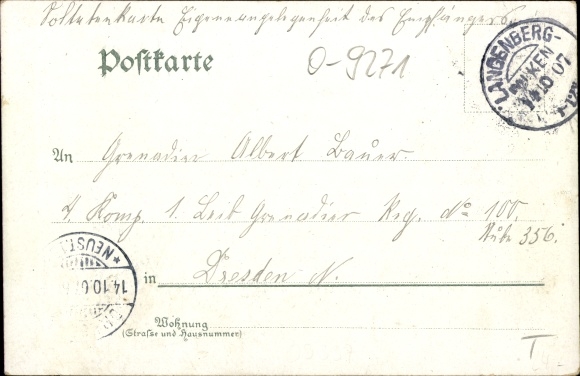 Soldatenkarte Eigene Angelegenheit des Empfängers
Postkarte
O-9271
LANGENBERG-
FALKEN
14 10 07
An Grenadier Albert Bauer.
4. Komp. 1. Leib Grenadier Reg. No 100.
Stube 356.
*NEUST.
14.10.0
in Dresden N.
Wohnung
(Straße und Hausnummer)
T